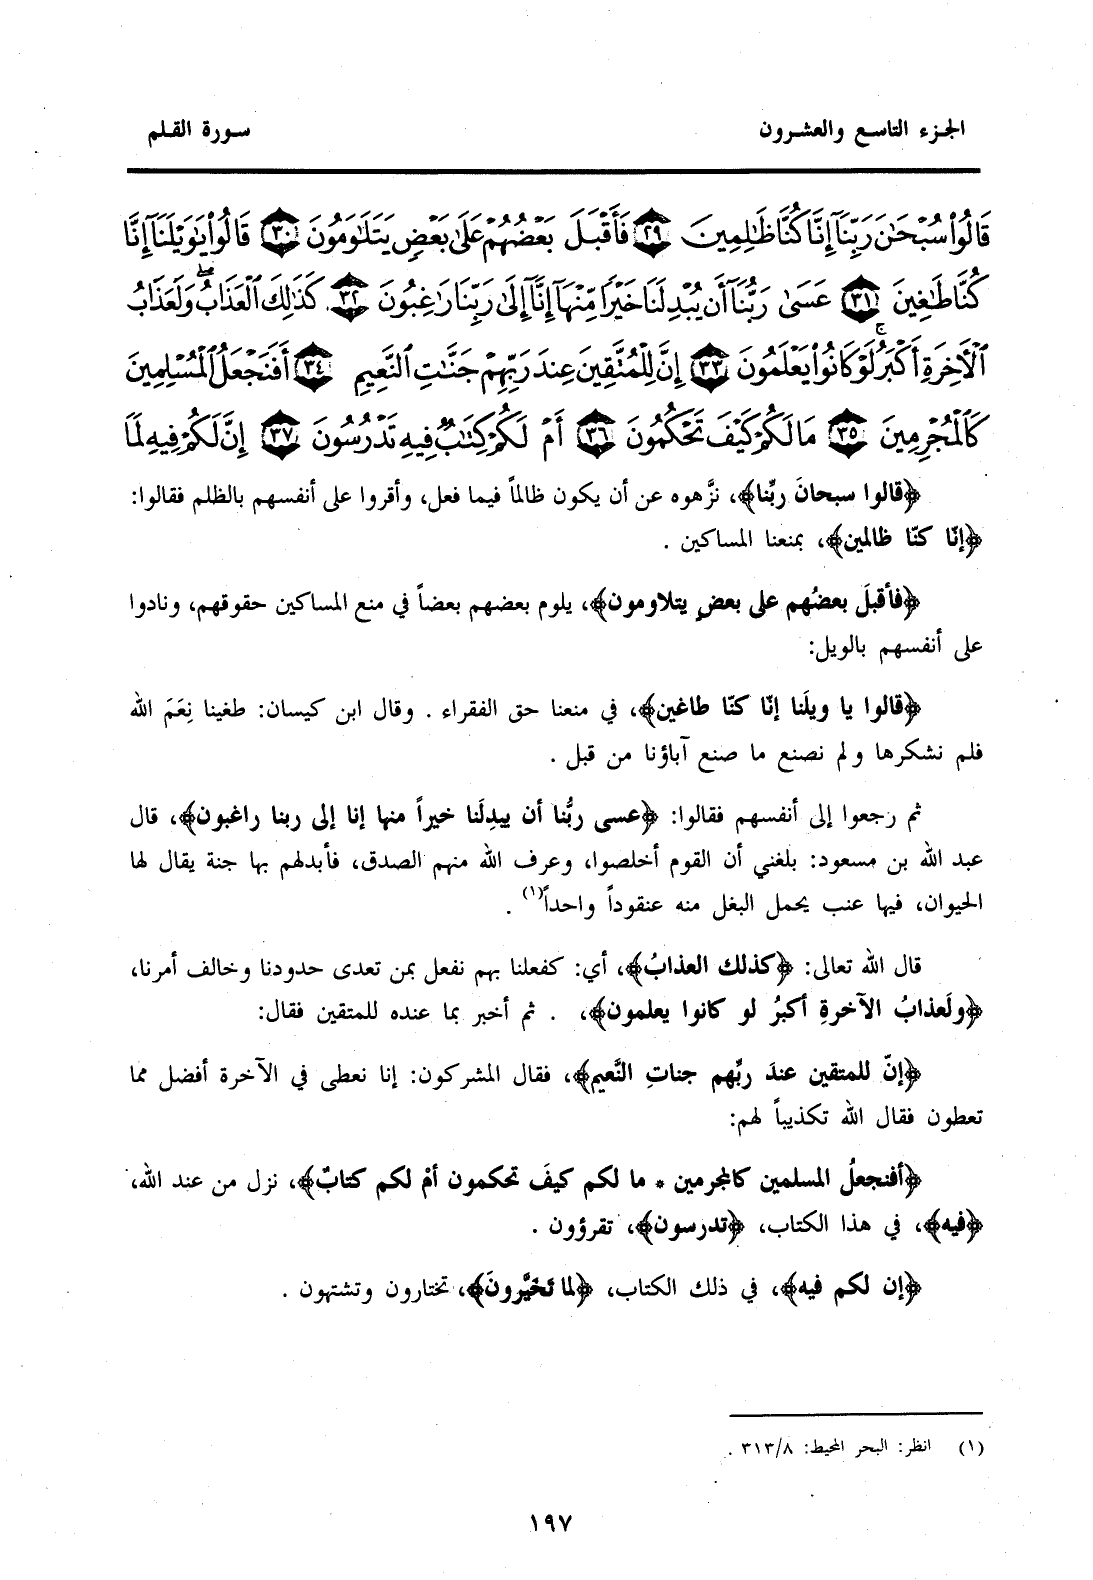 الجزء التاسع والعشرون
سورة القلم
قَالُوا۟ سُبْحَٰنَ رَبِّنَآ إِنَّا كُنَّا ظَٰلِمِينَ ﴿٢٩﴾ فَأَقْبَلَ بَعْضُهُمْ عَلَىٰ بَعْضٍ يَتَلَٰوَمُونَ ﴿٣٠﴾ قَالُوا۟ يَٰوَيْلَنَآ إِنَّا
كُنَّا طَٰغِينَ ﴿٣١﴾ عَسَىٰ رَبُّنَآ أَن يُبْدِلَنَا خَيْرًا مِّنْهَآ إِنَّآ إِلَىٰ رَبِّنَا رَٰغِبُونَ ﴿٣٢﴾ كَذَٰلِكَ ٱلْعَذَابُ ۖ وَلَعَذَابُ
ٱلْـَٔاخِرَةِ أَكْبَرُ ۚ لَوْ كَانُوا۟ يَعْلَمُونَ ﴿٣٣﴾ إِنَّ لِلْمُتَّقِينَ عِندَ رَبِّهِمْ جَنَّٰتِ ٱلنَّعِيمِ ﴿٣٤﴾ أَفَنَجْعَلُ ٱلْمُسْلِمِينَ
كَٱلْمُجْرِمِينَ ﴿٣٥﴾ مَا لَكُمْ كَيْفَ تَحْكُمُونَ ﴿٣٦﴾ أَمْ لَكُمْ كِتَٰبٌ فِيهِ تَدْرُسُونَ ﴿٣٧﴾ إِنَّ لَكُمْ فِيهِ لَمَا
﴿قالوا سبحانَ ربِّنا﴾، نزَّهوه عن أن يكون ظالماً فيما فعل، وأقروا على أنفسهم بالظلم فقالوا:
﴿إنّا كنّا ظالمين﴾، بمنعنا المساكين .
﴿فأقبلَ بعضُهم على بعضٍ يتلاومون﴾، يلوم بعضهم بعضاً في منع المساكين حقوقهم، ونادوا
على أنفسهم بالويل:
﴿قالوا يا ويلَنا إنّا كنّا طاغين﴾، في منعنا حق الفقراء . وقال ابن كيسان: طغينا نِعَمَ الله
فلم نشكرها ولم نصنع ما صنع آباؤنا من قبل .
ثم رجعوا إلى أنفسهم فقالوا: ﴿عسى ربُّنا أن يبدِلَنا خيراً منها إنا إلى ربنا راغبون﴾، قال
عبد الله بن مسعود: بلغني أن القوم أخلصوا، وعرف الله منهم الصدق، فأبدلهم بها جنة يقال لها
الحيوان، فيها عنب يحمل البغل منه عنقوداً واحداً(١) .
قال الله تعالى: ﴿كذلك العذابُ﴾، أي: كفعلنا بهم نفعل بمن تعدى حدودنا وخالف أمرنا،
﴿ولَعذابُ الآخرةِ أكبرُ لو كانوا يعلمون﴾، . ثم أخبر بما عنده للمتقين فقال:
﴿إنّ للمتقين عندَ ربِّهم جناتِ النَّعيم﴾، فقال المشركون: إنا نعطى في الآخرة أفضل مما
تعطون فقال الله تكذيباً لهم:
﴿أفنجعلُ المسلمين كالمجرمين * ما لكم كيفَ تحكمون أمْ لكم كتابٌ﴾، نزل من عند الله،
﴿فيه﴾، في هذا الكتاب، ﴿تدرسون﴾، تقرؤون .
﴿إن لكم فيه﴾، في ذلك الكتاب، ﴿لما تخيَّرونَ﴾، تختارون وتشتهون .
(١) انظر: البحر المحيط: ٣١٣/٨ .
١٩٧